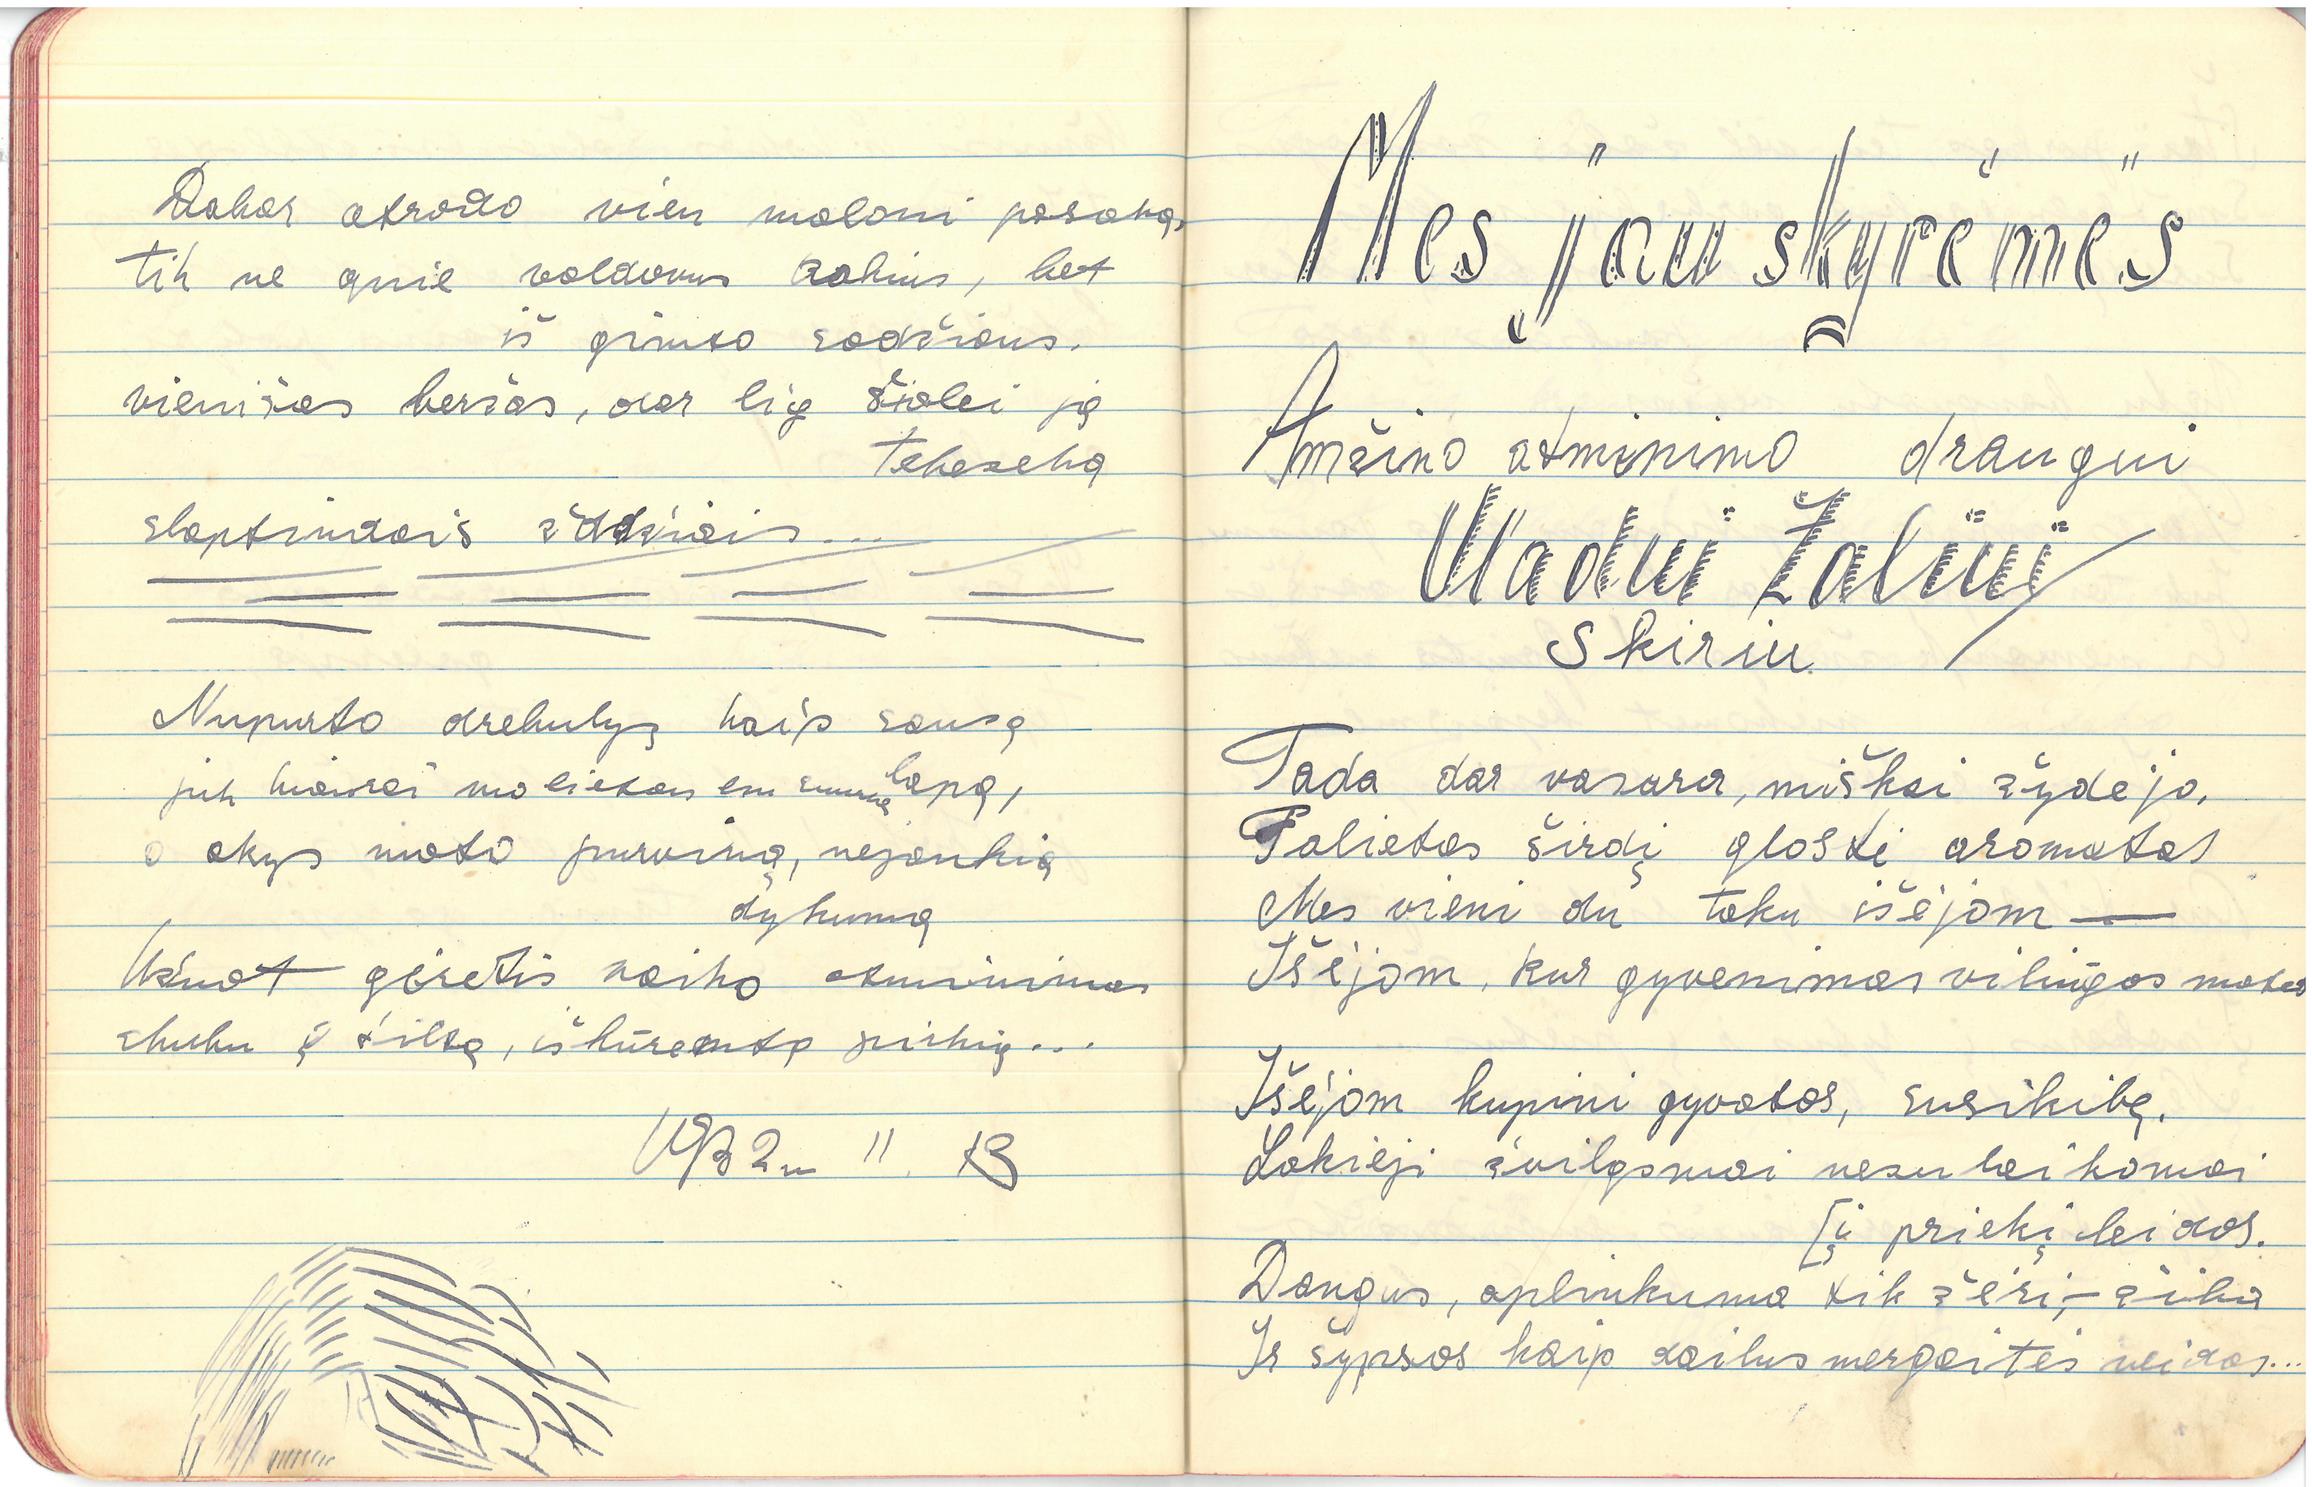 Dabar atrodo vien maloni pasaka,
tik ne apie valdovus zokius, bet
iš gimto sodžiaus.
vienišas beržas, dar lig šiolei ją
tebeseka
slaptingais žodžiais...
Nupurto drebulys kaip sausą
juk kiaurai molietam em lapą,
o akys mato purviną, nejaukią
dykumą
Užuot gėrėtis vaiko atminimas
skubu į šiltą, iškūrentą pirkią...
1932 m II 13
Mes jau skyrėmės
Amžino atminimo draugui
Vladui Žaliui
skiriu
Tada dar vasara, miškai žydėjo,
Palietas širdį glostė aromatas
Mes vieni du taku išėjom —
Išėjom, kur gyvenimas vilingas matės
Išėjom kupini gyvatos, susikibę.
Lakieji žvilgsniai nesulaikomai
[į priekį leidos.
Dangus, aplinkuma tik žėri, – žiba
Ir šypsos kaip dailus mergaitės veidas...